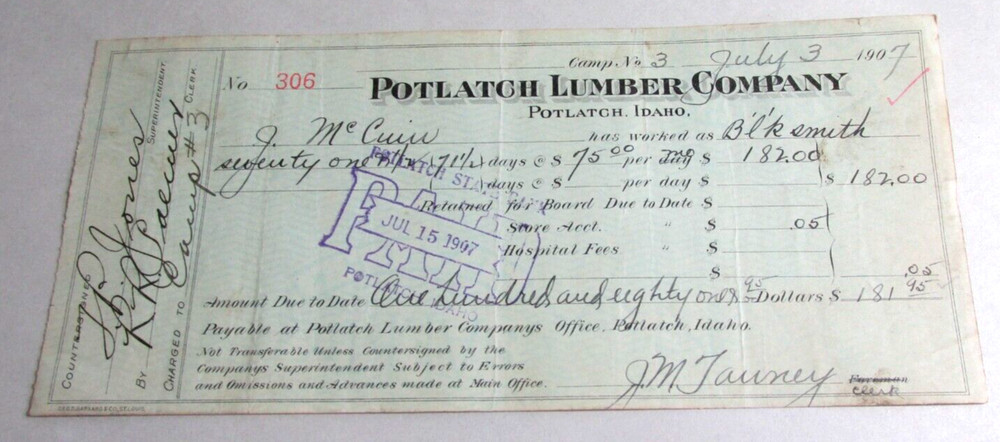 Camp No 3 July 3 1907
No 306
POTLATCH LUMBER COMPANY
POTLATCH, IDAHO,
J. McCuin has worked as Bl'ksmith
seventy one (71½) days @ $ 75.00 per day mo $ 182.00
days @ $ per day $ $ 182.00
Retained for Board Due to Date $
Store Acct. " $ .05
Hospital Fees $
$ .05
Amount Due to Date One hundred and eighty one & 95 Dollars $ 181.95
Payable at Potlatch Lumber Companys Office, Potlatch, Idaho.
Not Transferable Unless Countersigned by the
Companys Superintendent Subject to Errors
and Omissions and Advances made at Main Office.
J.M. Tawney Foreman
clerk
POTLATCH STATE BANK
PAID
JUL 15 1907
POTLATCH, IDAHO
COUNTERSIGNED Jones SUPERINTENDENT.
BY R.R. Palmer CLERK.
CHARGED TO Camp #3